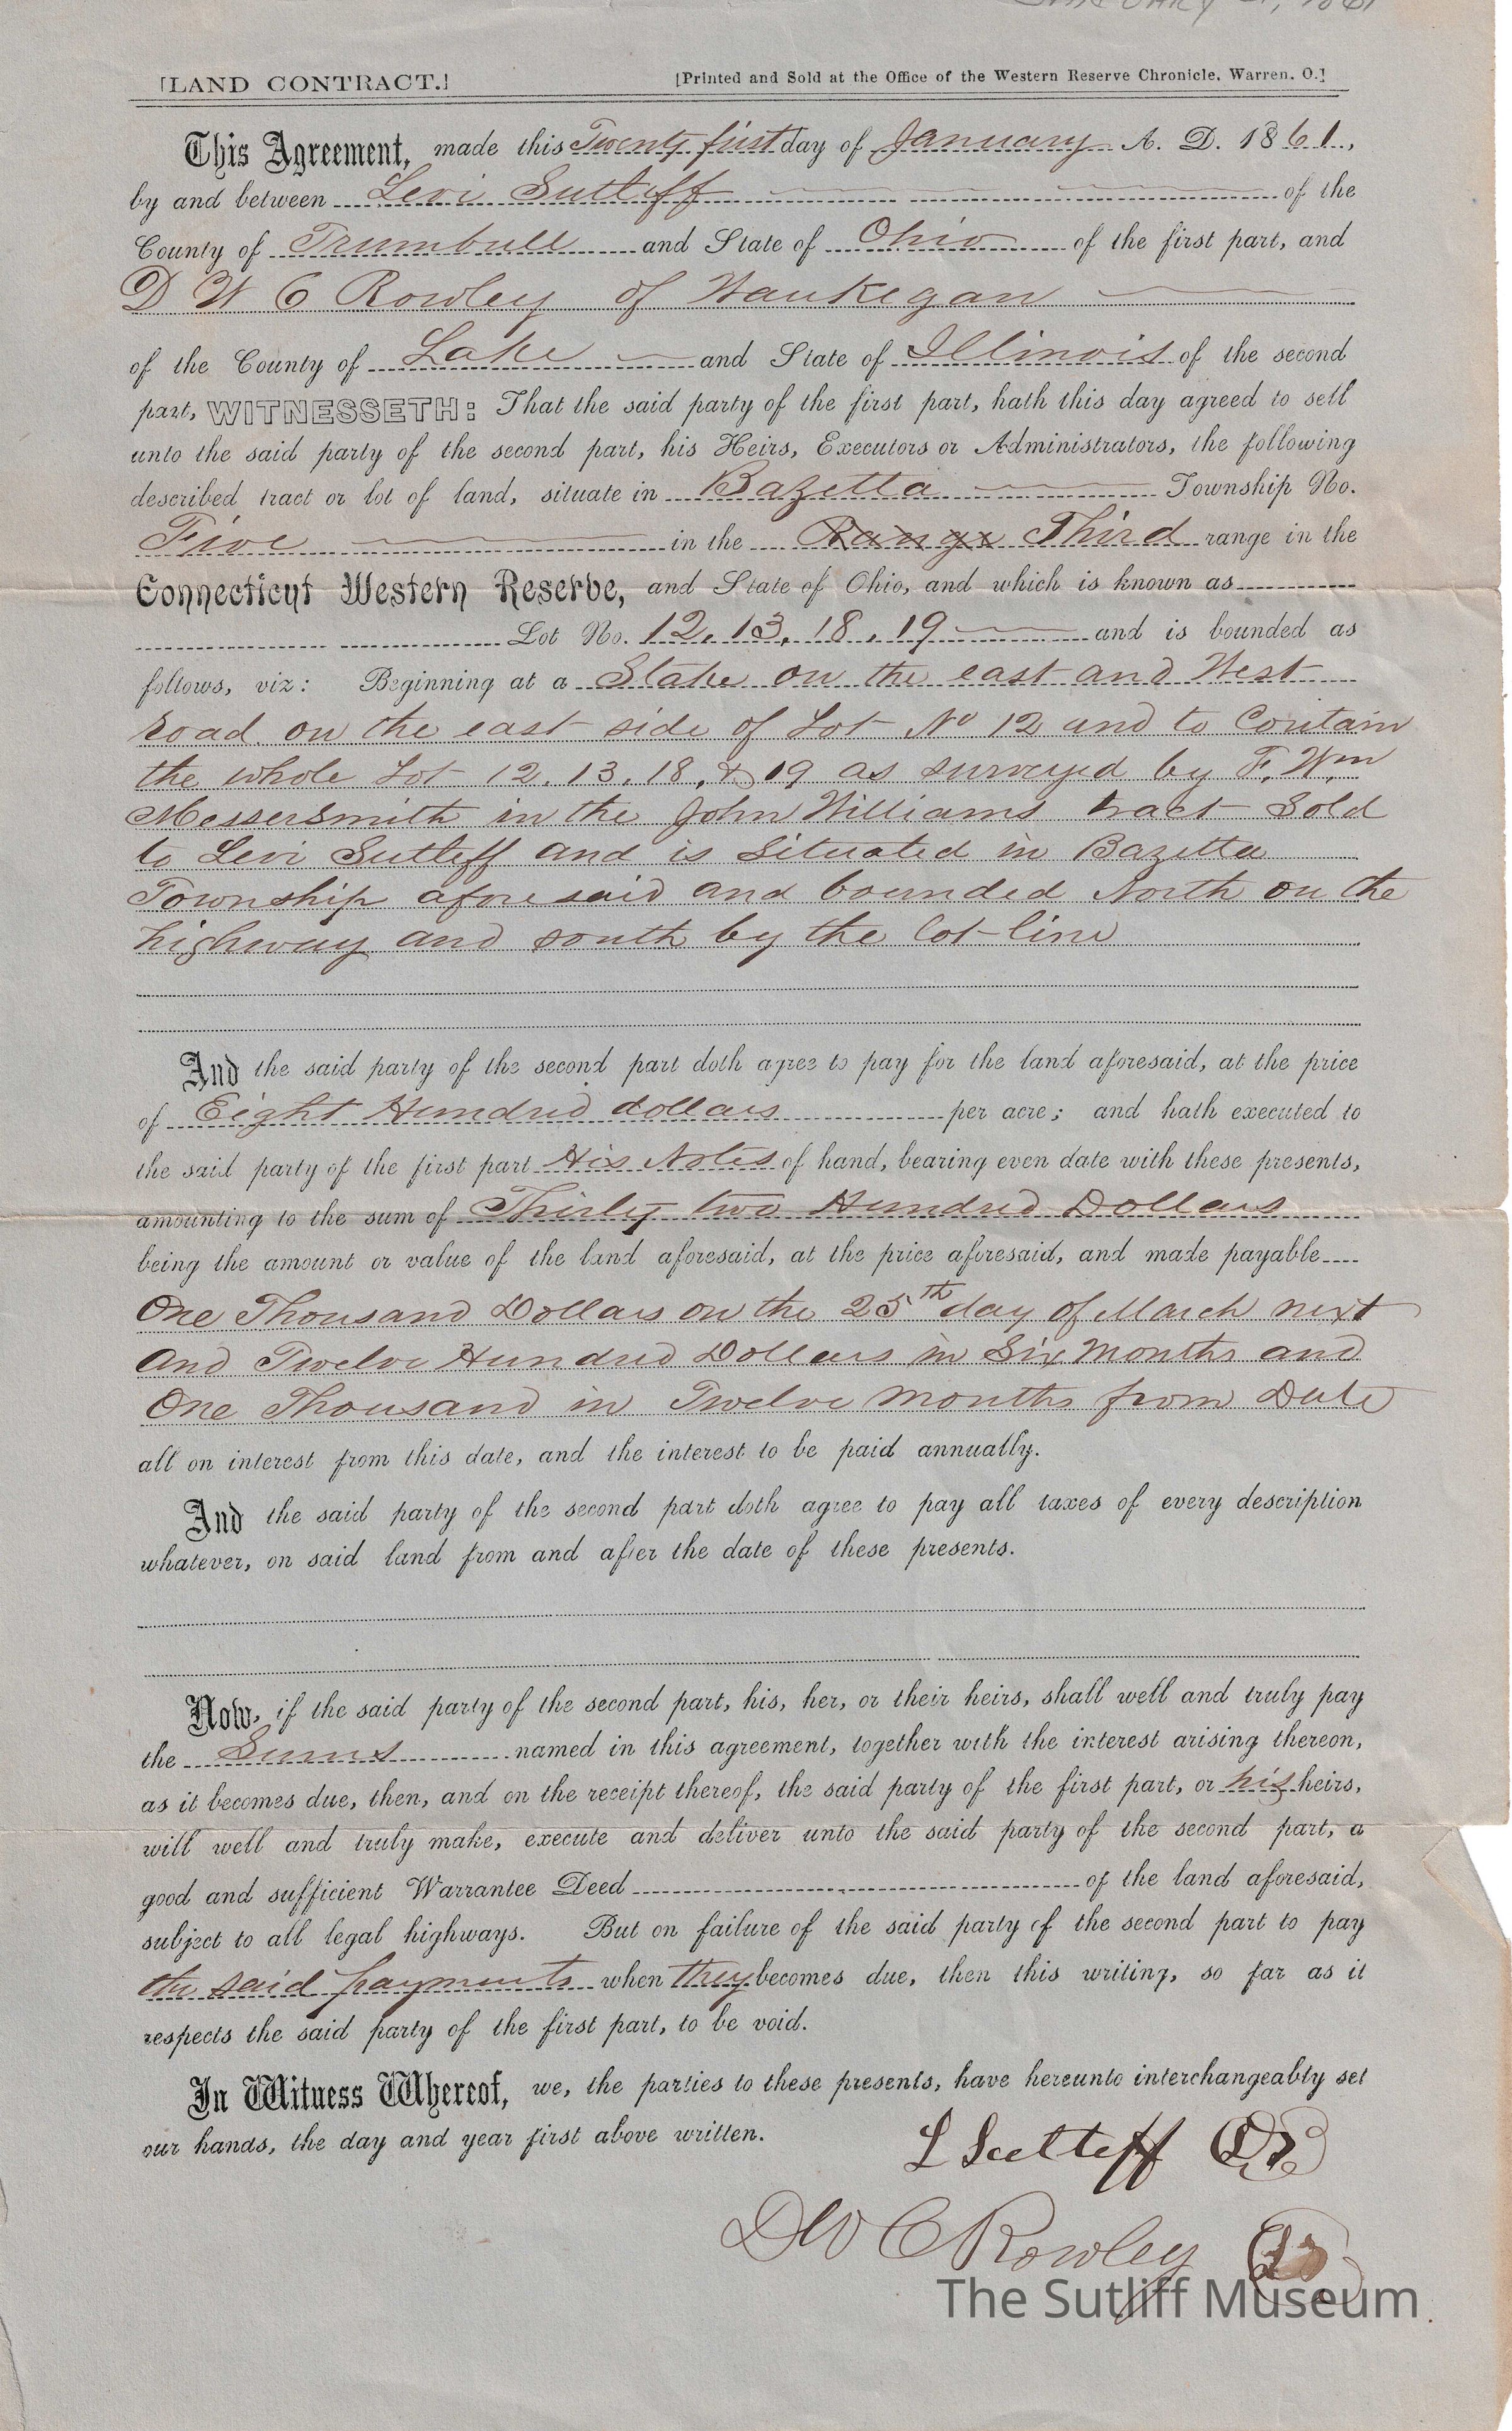 JANUARY 21, 1861
[LAND CONTRACT.] [Printed and Sold at the Office of the Western Reserve Chronicle, Warren, O.]
This Agreement, made this Twenty first day of January A. D. 1861,
by and between Levi Sutleff of the
County of Trumbull and State of Ohio of the first part, and
D W C Rowley of Waukegan
of the County of Lake and State of Illinois of the second
part, WITNESSETH: That the said party of the first part, hath this day agreed to sell
unto the said party of the second part, his Heirs, Executors or Administrators, the following
described tract or lot of land, situate in Bazetta Township No.
Five in the Range Third range in the
Connecticut Western Reserve, and State of Ohio, and which is known as
Lot No. 12, 13, 18, 19 and is bounded as
follows, viz: Beginning at a Stake on the east and West
road on the east side of Lot No 12 and to Contain
the whole Lot 12. 13. 18, & 19 as surveyed by F. Wm
Messersmith in the John Williams tract Sold
to Levi Sutleff and is Situated in Bazetta
Township aforesaid and bounded North on the
highway and south by the lot line
And the said party of the second part doth agree to pay for the land aforesaid, at the price
of Eight Hundred dollars per acre; and hath executed to
the said party of the first part His Notes of hand, bearing even date with these presents,
amounting to the sum of Thirty two Hundred Dollars
being the amount or value of the land aforesaid, at the price aforesaid, and made payable
One Thousand Dollars on the 25th day of March next
And Twelve Hundred Dollars in Six Months and
One Thousand in Twelve months from Date
all on interest from this date, and the interest to be paid annually.
And the said party of the second part doth agree to pay all taxes of every description
whatever, on said land from and after the date of these presents.
Now, if the said party of the second part, his, her, or their heirs, shall well and truly pay
the Sums named in this agreement, together with the interest arising thereon,
as it becomes due, then, and on the receipt thereof, the said party of the first part, or his heirs,
will well and truly make, execute and deliver unto the said party of the second part, a
good and sufficient Warrantee Deed of the land aforesaid,
subject to all legal highways. But on failure of the said party of the second part to pay
the said payments when they becomes due, then this writing, so far as it
respects the said party of the first part, to be void.
In Witness Whereof, we, the parties to these presents, have hereunto interchangeably set
our hands, the day and year first above written.
L Sutleff LS
D W C Rowley LS
The Sutliff Museum